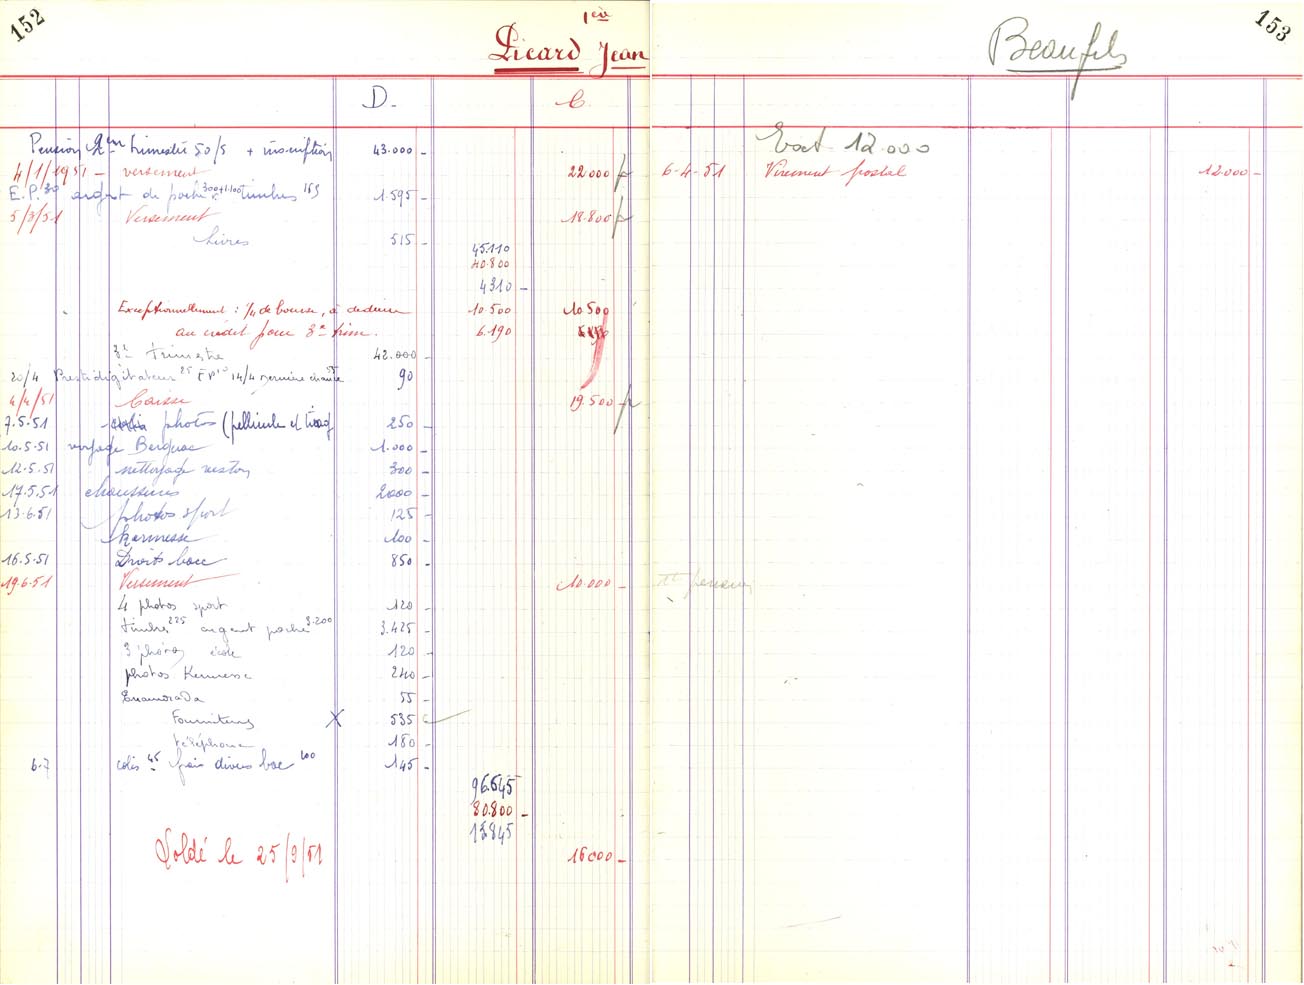 152
1ère
Picard Jean
D. C.
Pension 2em trimestre 50/5 + inscription 43.000 -
4/1/1951 - versement 22000
E.P. 30 argent de poche 300+1.100 timbres 165 1.595 -
5/3/51 Versement 18.800
Livres 515 -
45.110
40.800
4310 -
Exceptionnellement : 1/4 de bourse, à déduire 10.500 10.500
au crédit pour 3e trim. 6.190
3e trimestre 42.000 -
20/4 Prestidigitateur 25 E P 10 14/4 dernière chance 55 90
4/4/51 Caisse 19.500 -
7.5.51 photos (pellicule et tirage 250 -
10.5.51 voyage Bergerac 1.000 -
12.5.51 nettoyage veston 300 -
17.5.51 chaussures 2000 -
13.6.51 photos sport 125
Kermesse 100 -
16.5.51 Droits bacc 850
19.6.51 Versement 10.000 -
4 photos sport 120
timbres 225 argent poche 3.200 3.425 -
3 photos école 120 -
photos Kermesse 240 -
Enamorada 55 -
Fournitures X 535
téléphone 180 -
6.7 colis 45 frais divers bac 100 145 -
96.645
80.800 -
15.845
Soldé le 25/9/51 16000 -
153
Beaufils
12.000
6-4-51 Virement postal 12.000 -